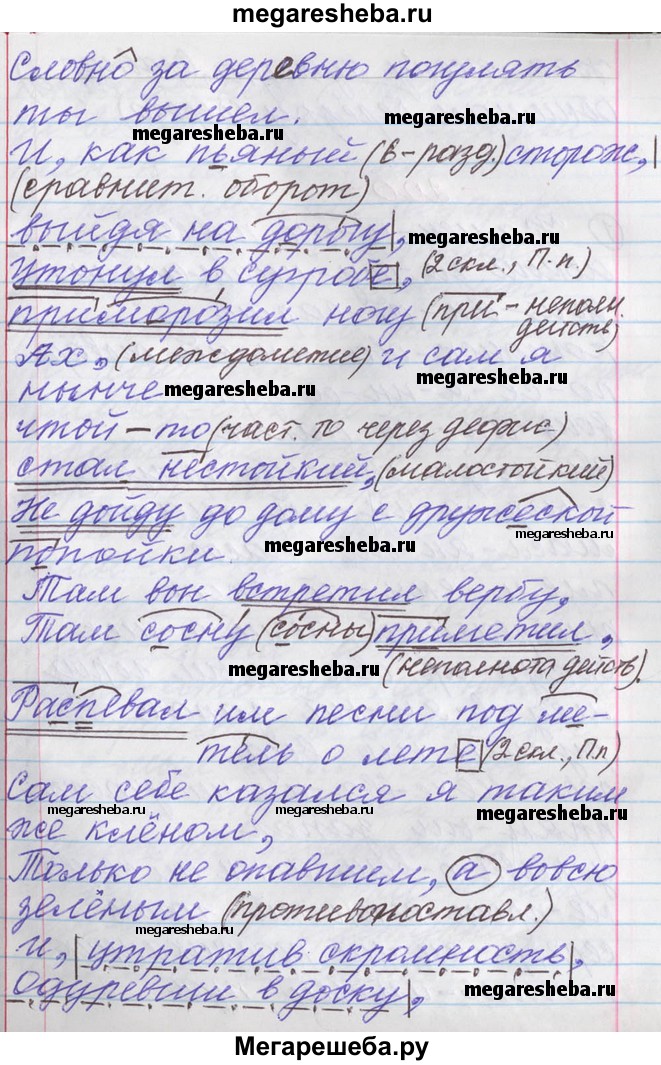 megaresheba.ru
Словно за деревню погулять
ты вышел. megaresheba.ru megaresheba.ru
И, как пьяный (ь-разд.) сторож,
(сравнит. оборот)
выйдя на дорогу, megaresheba.ru
Утонул в сугробе, (2 скл., П.п.)
приморозил ногу (при - неполн.
действ)
Ах, (междометие) и сам я
нынче megaresheba.ru megaresheba.ru
чтой-то (част. то через дефис)
стал нестойкий, (малостойкий)
Не дойду до дому с дружеской
попойки. megaresheba.ru megaresheba.ru
Там вон встретил вербу,
Там сосну (сосны) приметил,
megaresheba.ru (неполнота действ).
Распевал им песни под ме-
тель о лете (2 скл., П.п)
Сам себе казался я таким
megaresheba.ru megaresheba.ru megaresheba.ru
же клёном,
Только не опавшим, а вовсю
зелёным (противопоставл.)
megaresheba.ru
И, утратив скромность,
одуревши в доску, megaresheba.ru
Мегарешеба.ру